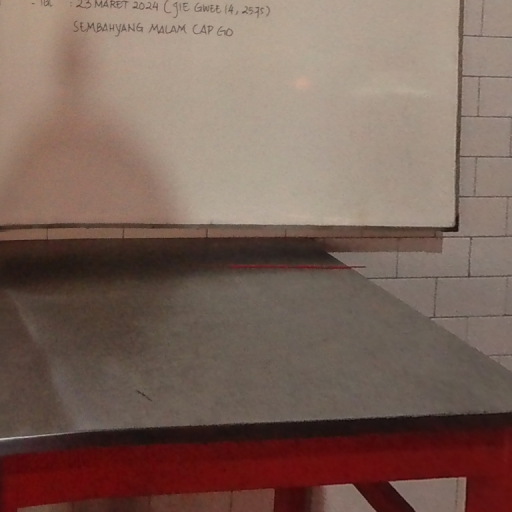 - TGL : 23 MARET 2024 (JIE GWEE 14, 2575)
SEMBAHYANG MALAM CAP GO